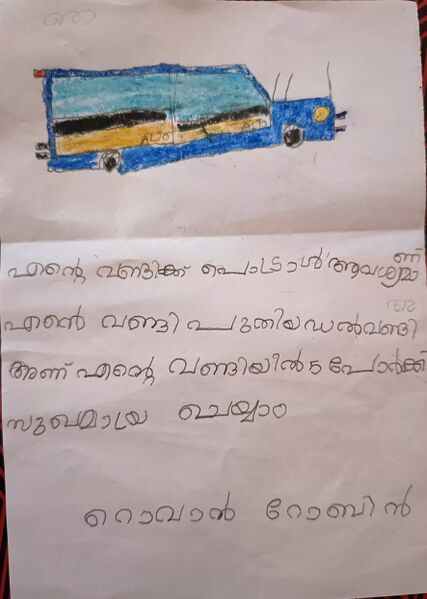 ഞാ
ALTO ALTO
എന്റെ വണ്ടിക്ക് പെട്രാൾ ആവശ്യമാണ്
എൻെ വണ്ടി പുതിയഡൽവണ്ടി
അണ് എന്റെ വണ്ടിയിൽ 5 പോർക്ക്
സുഖമായ്ര ചെയ്യാം
റൊവാൻ റോബിൻ